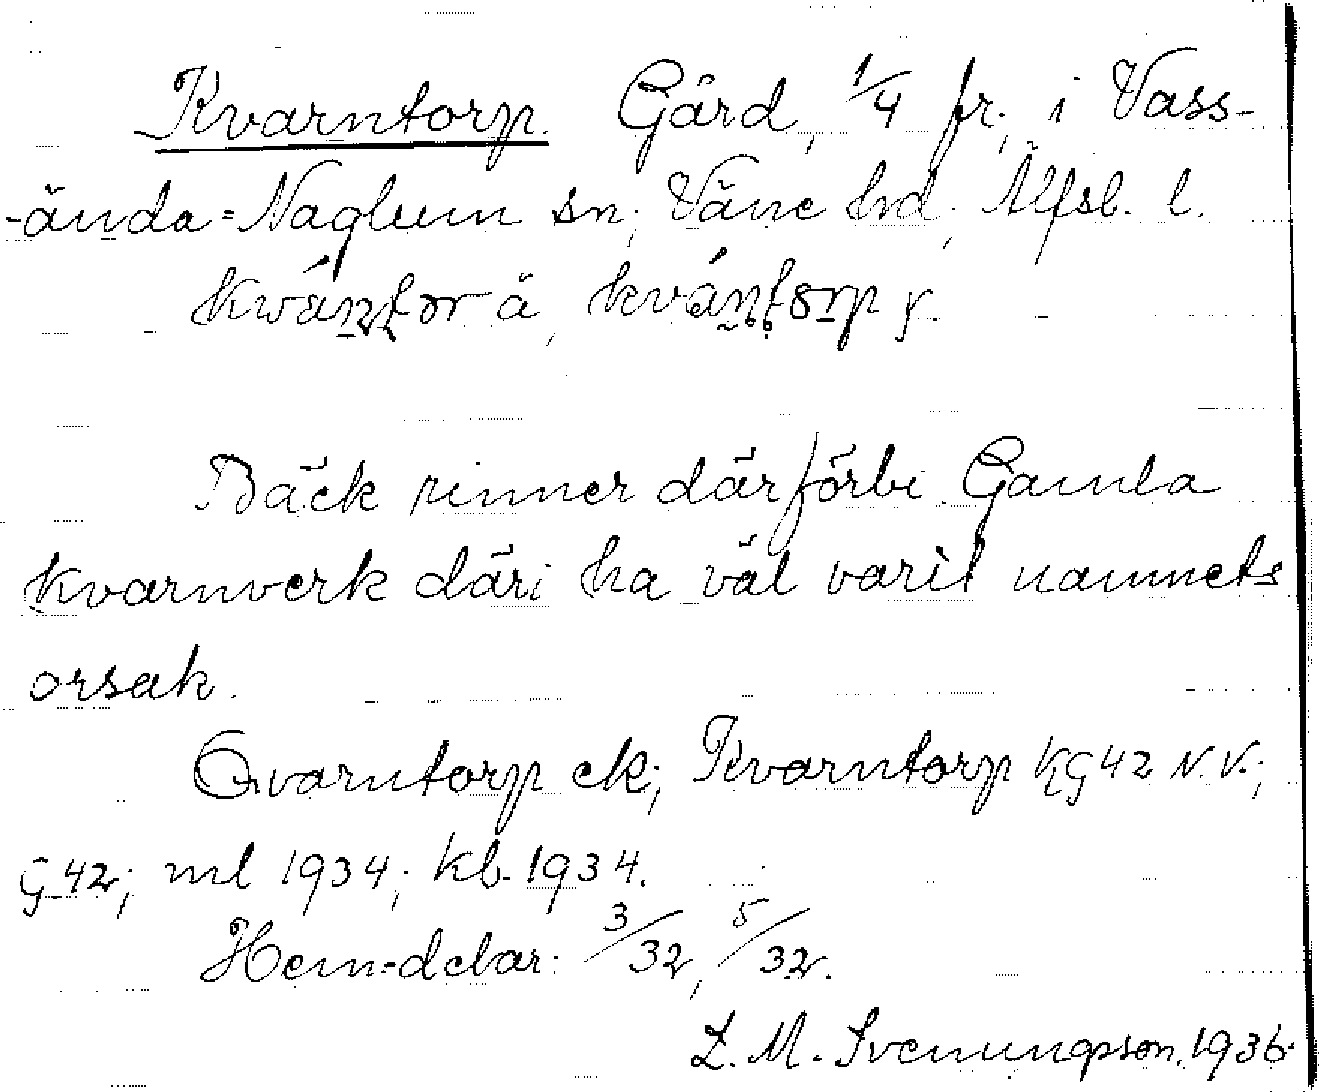 Kvarntorp. Gård, 1/4 fr., i Vass-
-ända=Naglum sn, Väne hd, Älfsb. l.
kwántor ä, kvántorp y.
Bäck rinner därförbi. Gamla
kvarnverk däri ha väl varit namnets
orsak.
Qvarntorp ek; Kvarntorp KG42 N.V.;
G42; ml 1934; kb. 1934.
Hem=delar: 3/32, 5/32.
L. M. Svenungsson, 1936.